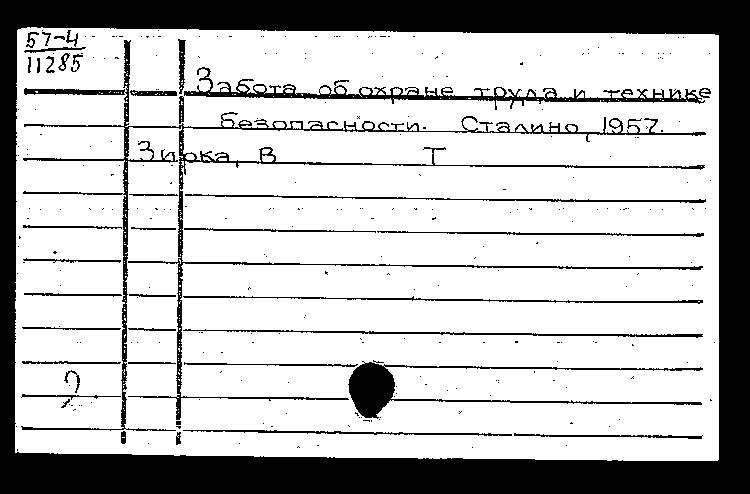 57-4
11285
Забота об охране труда и технике
безопасности. Сталино, 1957.
Зирка, В Т